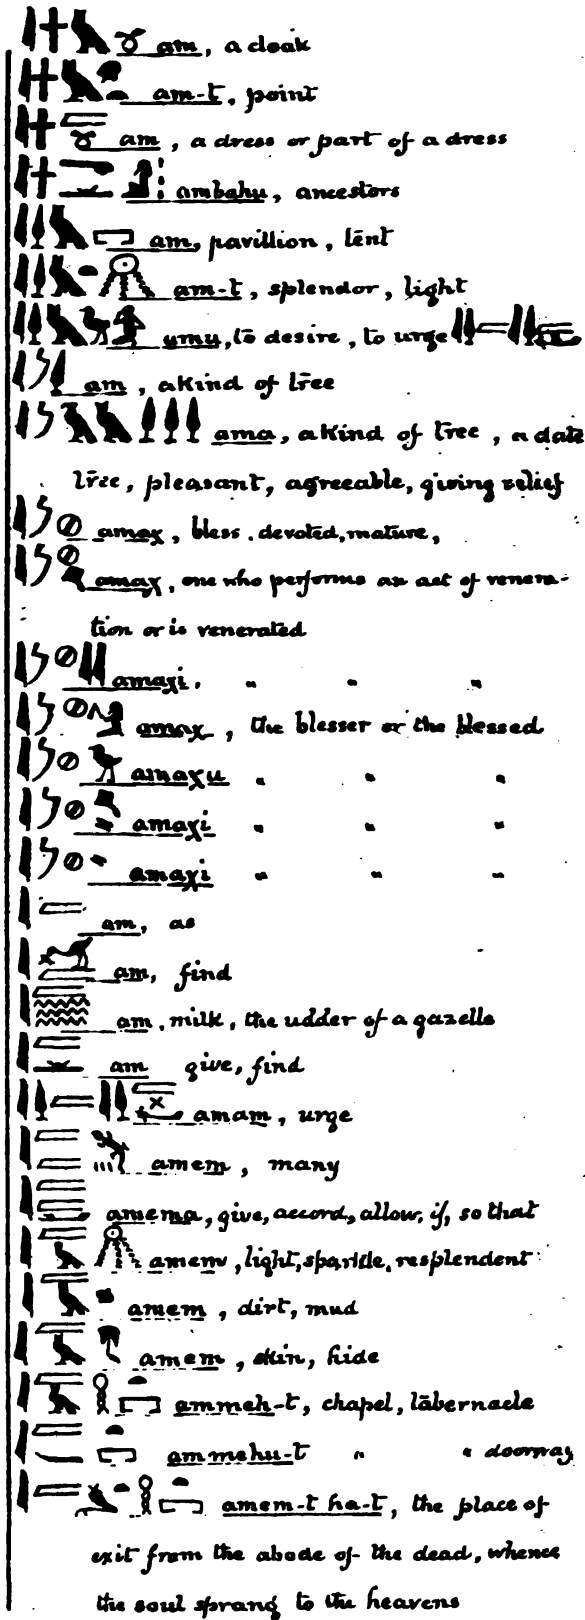 am, a cloak
am-t, point
am, a dress or part of a dress
ambahu, ancestors
am, pavillion, tent
am-t, splendor, light
umu, to desire, to urge
am, a kind of tree
ama, a kind of tree, a date
tree, pleasant, agreeable, giving relief
amaχ, bless. devoted, mature,
amaχ, one who performs an act of venera-
tion or is venerated
amaχi, " " "
amaχ, the blesser or the blessed
amaχu " " "
amaχi " " "
amaχi " " "
am, as
am, find
am, milk, the udder of a gazelle
am give, find
amam, urge
amem, many
amema, give, accord, allow, if, so that
amem, light, sparkle, resplendent
amem, dirt, mud
amem, skin, hide
ammeh-t, chapel, tabernacle
ammehu-t " " doorway
amem-t ha-t, the place of
exit from the abode of the dead, whence
the soul sprang to the heavens